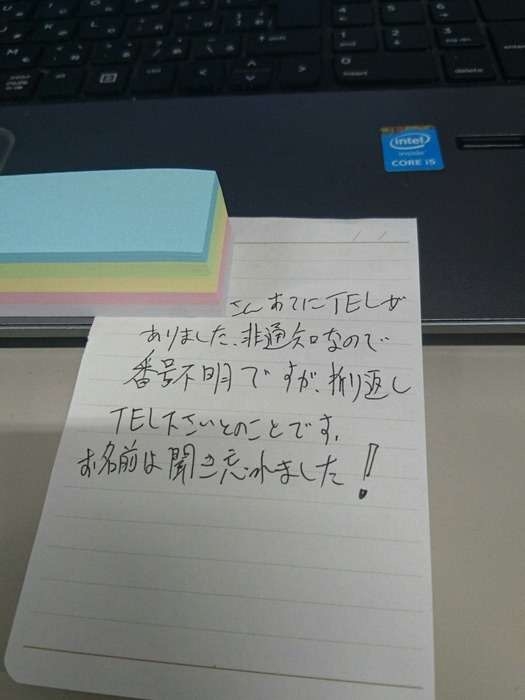 さんあてにTELが
ありました、非通知なので
番号不明ですが、折り返し
TEL下さいとのことです。
お名前は聞き忘れました!
intel
inside
CORE i5
delete